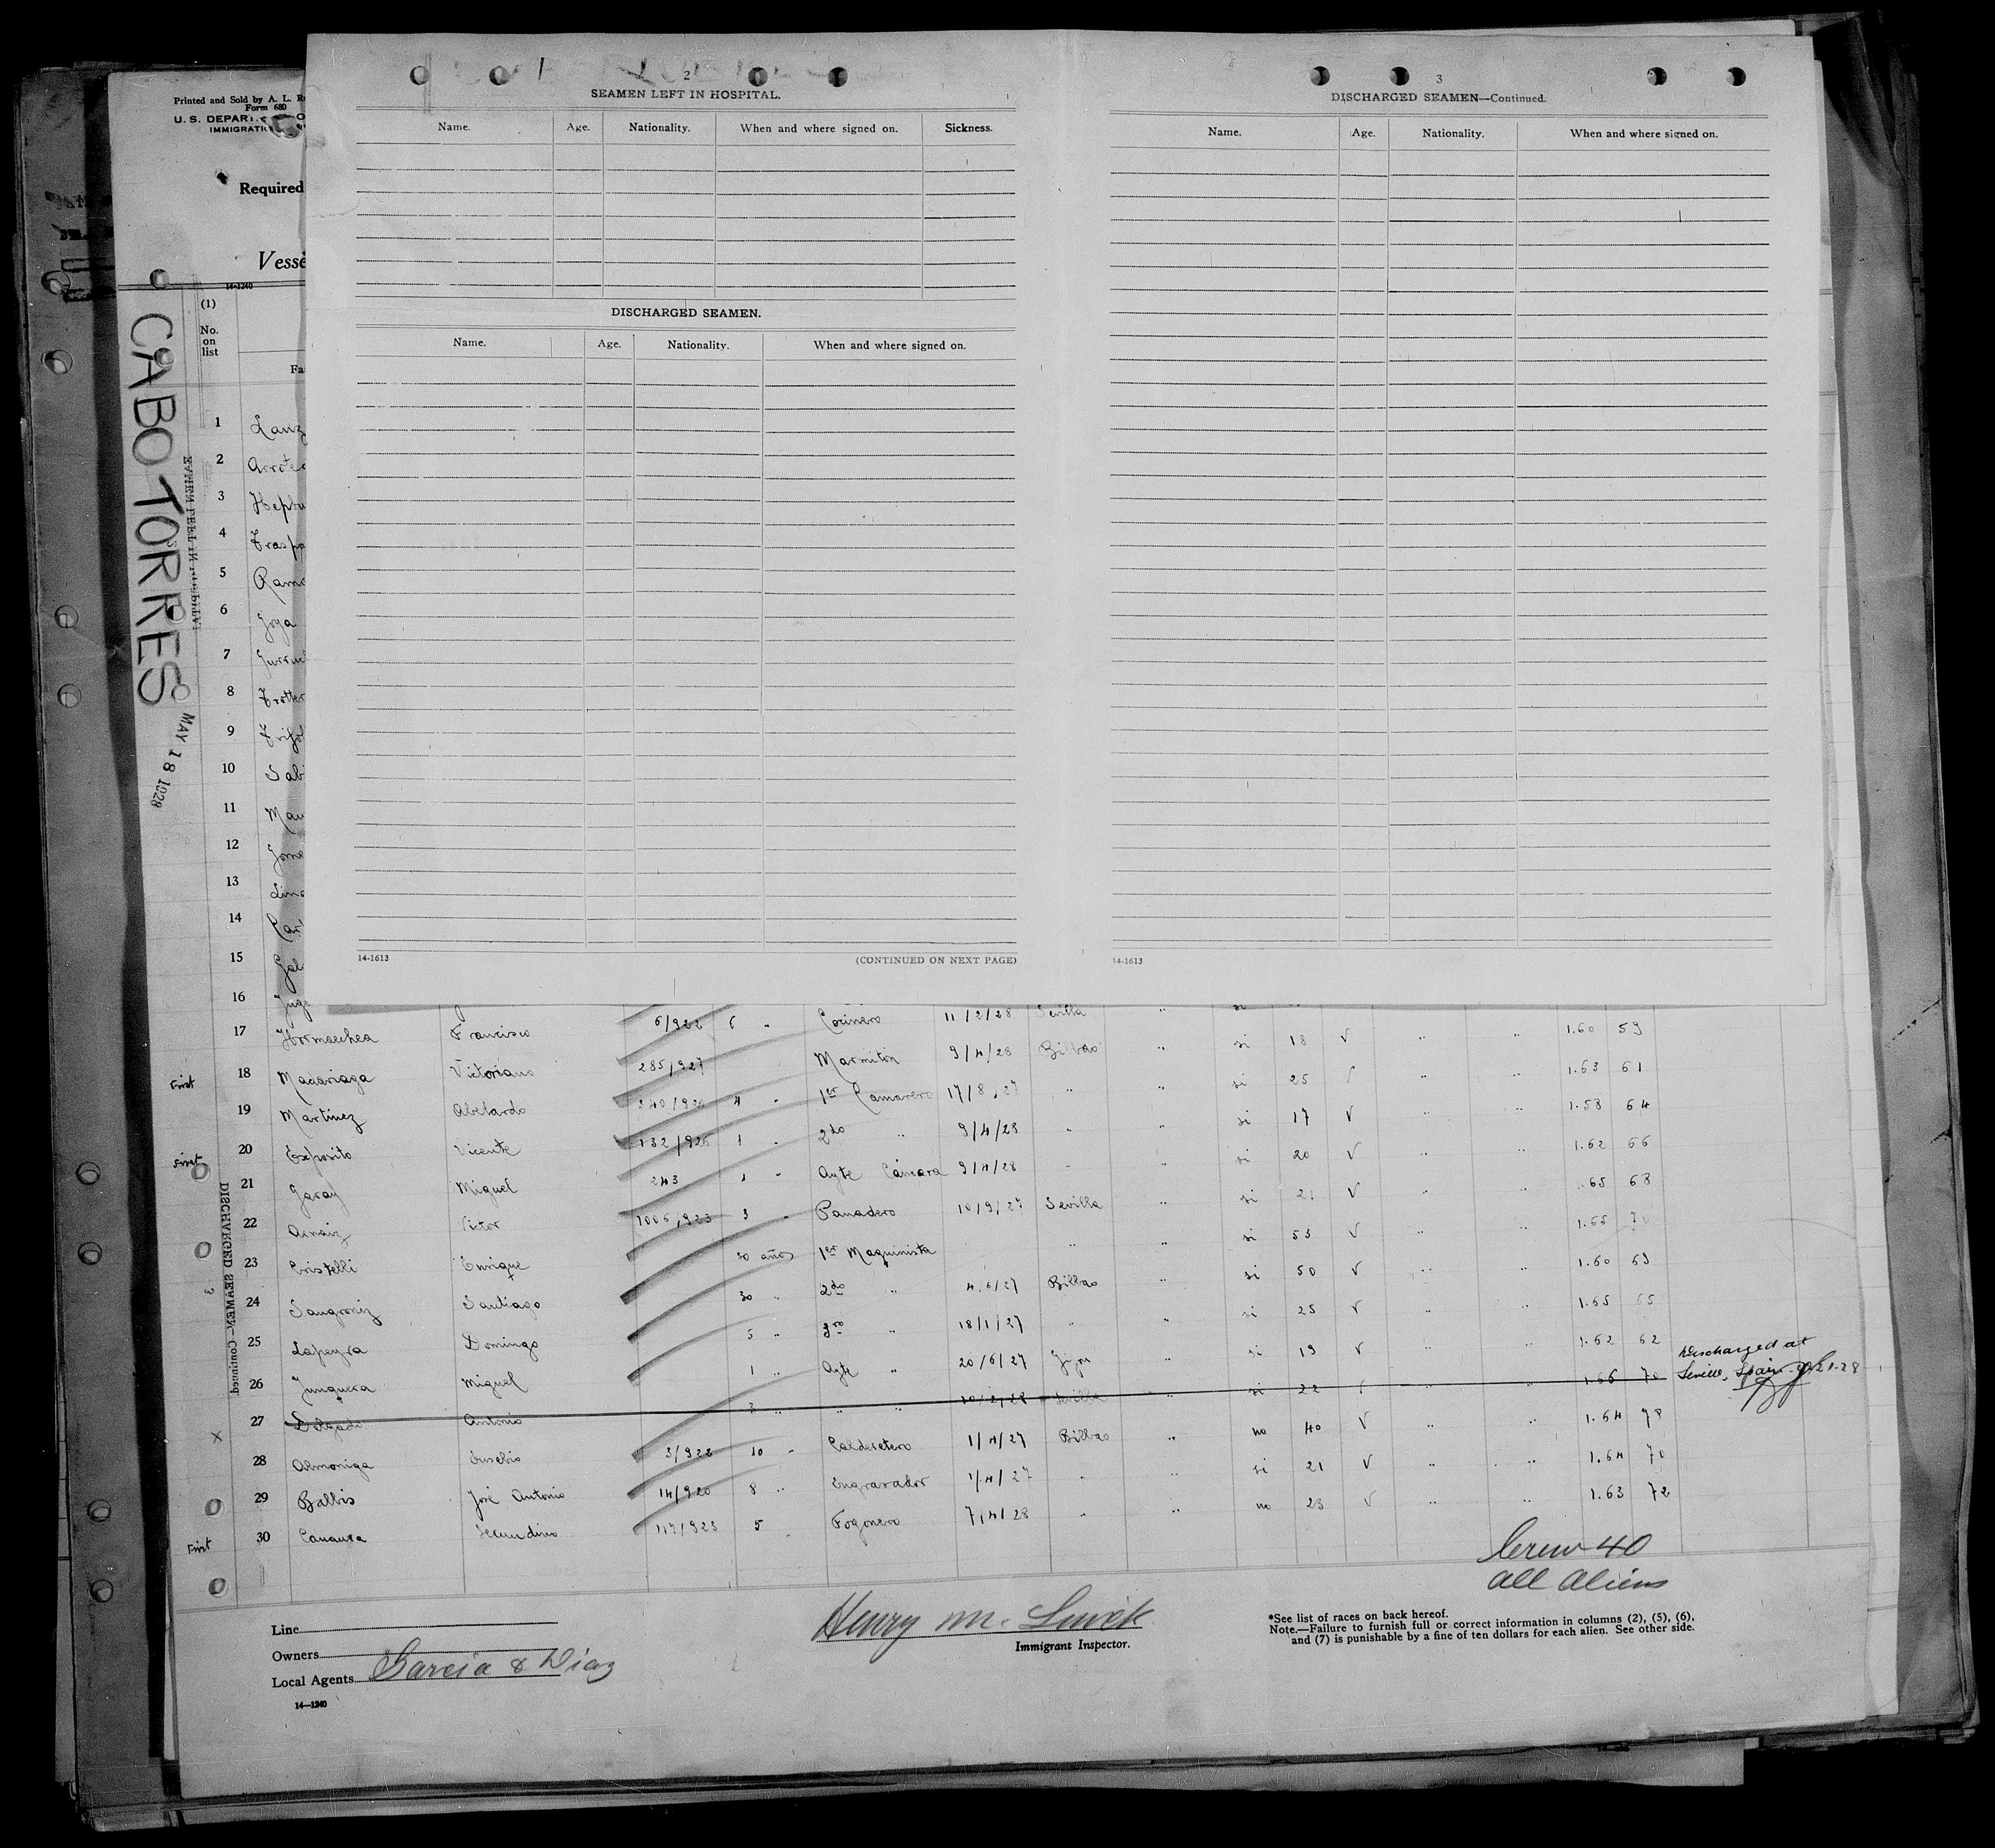 2
SEAMEN LEFT IN HOSPITAL.
Name. Age. Nationality. When and where signed on. Sickness.
DISCHARGED SEAMEN.
Name. Age. Nationality. When and where signed on.
14-1613 (CONTINUED ON NEXT PAGE)
3
DISCHARGED SEAMEN—Continued.
Name. Age. Nationality. When and where signed on.
14-1613
Printed and Sold by A. L.
Form 680
U. S. DEPART
IMMIGRATI
Required
Vesse
14-1240
(1)
No. on list
Fa
CABO TORRES
MAY 18 1928
SEAMEN LEFT IN HOSPITAL
DISCHARGED SEAMEN—Continued.
3
1 Lanz
2 Arrote
3 Heptu
4 Frasp
5 Ramo
6 Goya
7
8 Trotter
9
10 Sabi
11 Mau
12 Gome
13 Lina
14 Car
15 Gal
16
17 Hormaechea Francisco 6/922 6 " Cocinero 11/2/28 Sevilla " si 18 V " " 1.60 59
First 18 Madariaga Victoriano 285/927 Marmiton 9/4/28 Bilbao " si 25 " " 1.63 61
19 Martinez Abelardo 4 " 1er Camarero 17/8/27 " " si 17 V " " 1.58 64
First 20 Exposito Vicente 132/926 1 " 2do " 9/4/28 " " si 20 V " " 1.62 66
21 Garay Miguel 243 1 " Ayte Cámara 9/4/28 " " si 21 V " " 65 68
22 Arnaiz Victor 1006/923 3 " Panadero 10/9/27 Sevilla " si 53 V " " 1.65
23 Cristelli Enrique 30 años 1er Maquinista " " si 50 V " " 1.60 69
24 Sangroniz Santiago 30 " 2do " 4/6/27 Bilbao " si 25 V " " 1.65
25 Lapeyra Domingo 5 " 3ro " 18/1/27 " " si 19 V " " 1.62 62
26 Junquera Miguel 1 " Ayte " 20/6/27 Gijon " si 22 " " 1.66 70
Discharged at
Seville, Spain
27 Delgado Antonio 3 " " " 10/2/28 Sevilla " no 40 V " " 1.64 78
X 28 Almoniga Eusebio 3/922 10 " Calderetero 1/4/27 Bilbao " si 21 V " " 1.64 70
29 Balbis José Antonio 14/920 8 " Engrasador 1/4/27 " " no 23 V " " 1.63 72
First 30 Canaura Secundino 117/923 5 " Fogonero 7/4/28 "
Crew 40
all aliens
Line
Owners
Local Agents Garcia & Diaz
14—1240
Henry M.
Immigrant Inspector.
*See list of races on back hereof.
Note.—Failure to furnish full or correct information in columns (2), (5), (6),
and (7) is punishable by a fine of ten dollars for each alien. See other side.